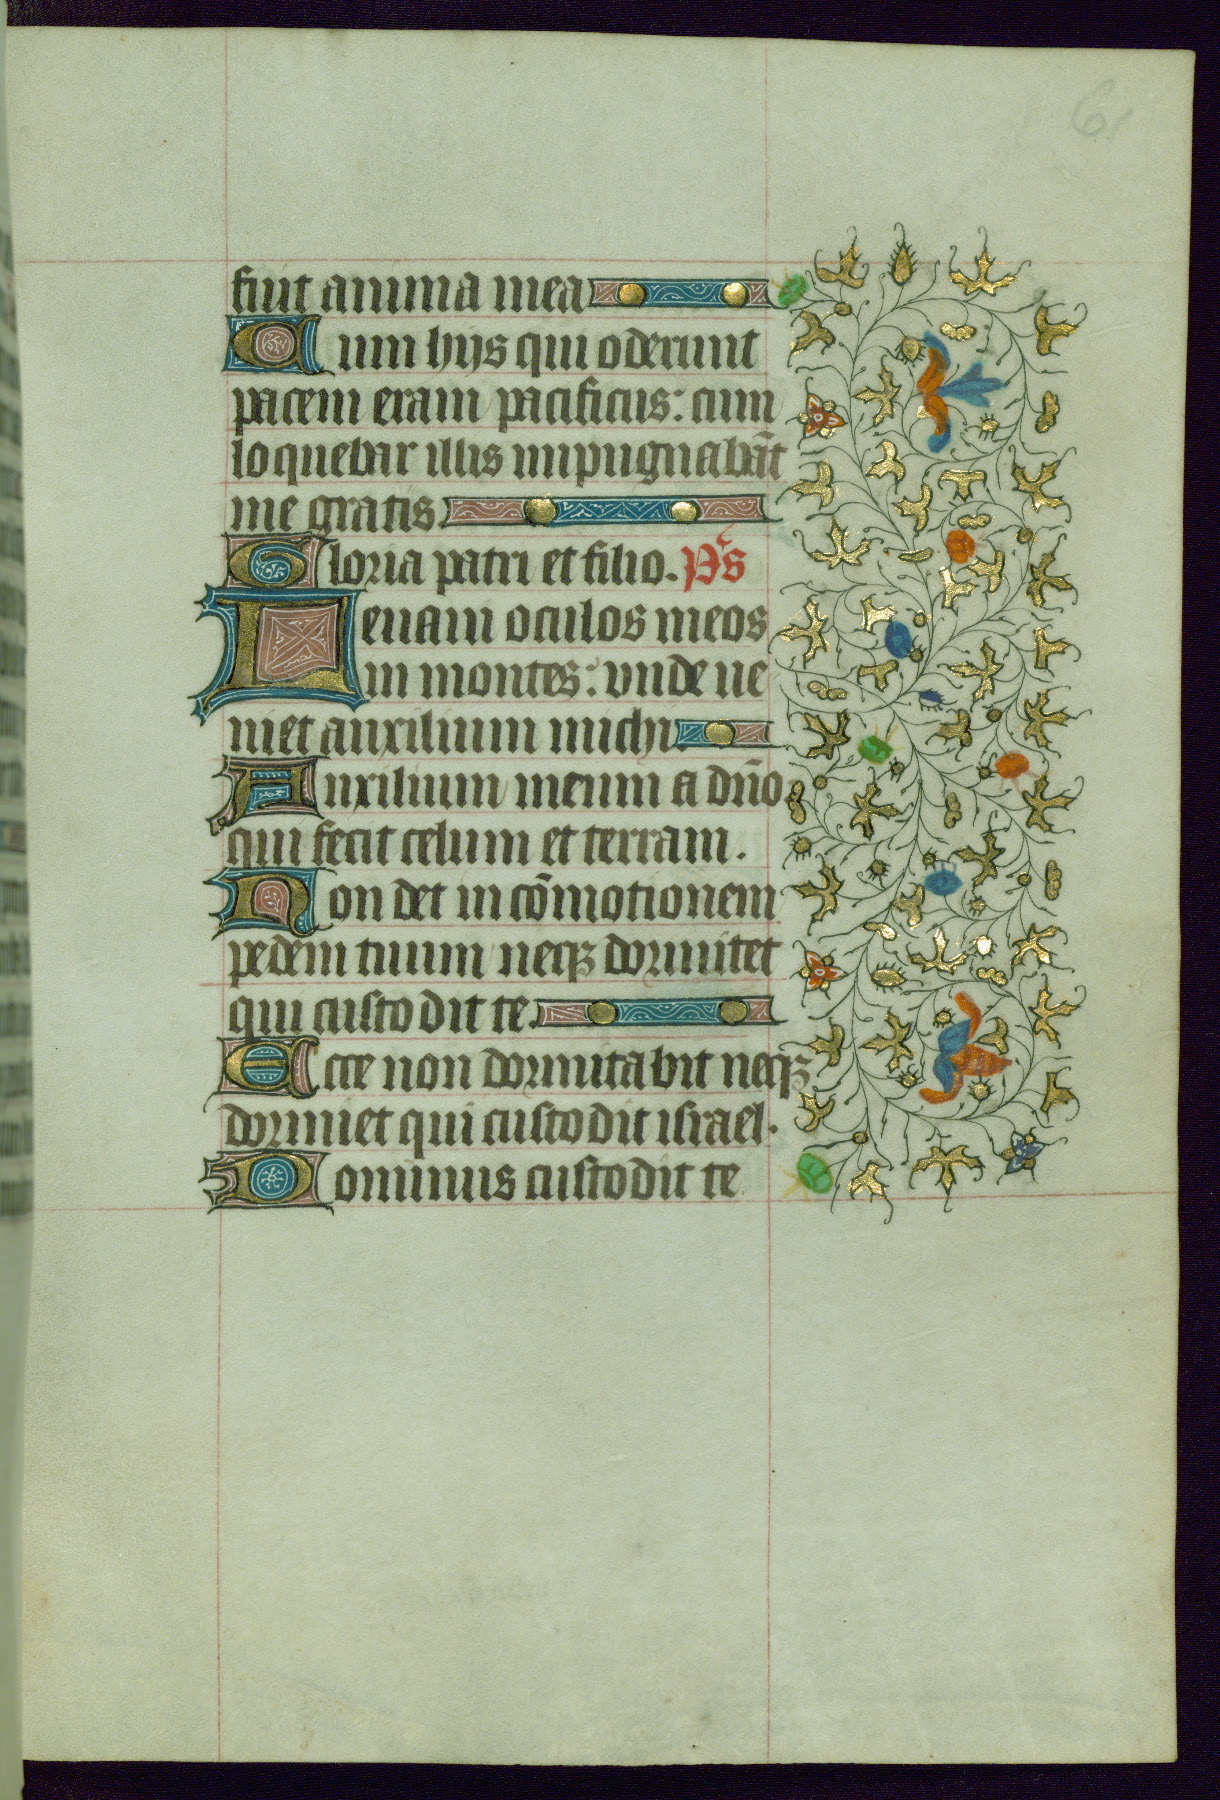 61
fuit anima mea
Cum hijs qui oderunt
pacem eram pacificus: cum
loquebar illis inpugnabāt
me gratis
Gloria patri et filio. Ps̄
Leuaui oculos meos
in montes: vnde ue
niet auxilium michi
Auxilium meum a dn̄o
qui fecit celum et terram.
Non det in cōmotionem
pedem tuum neqꝫ dormitet
qui custodit te.
Ecce non dormitabit neqꝫ
dormiet qui custodit israel.
Dominus custodit te